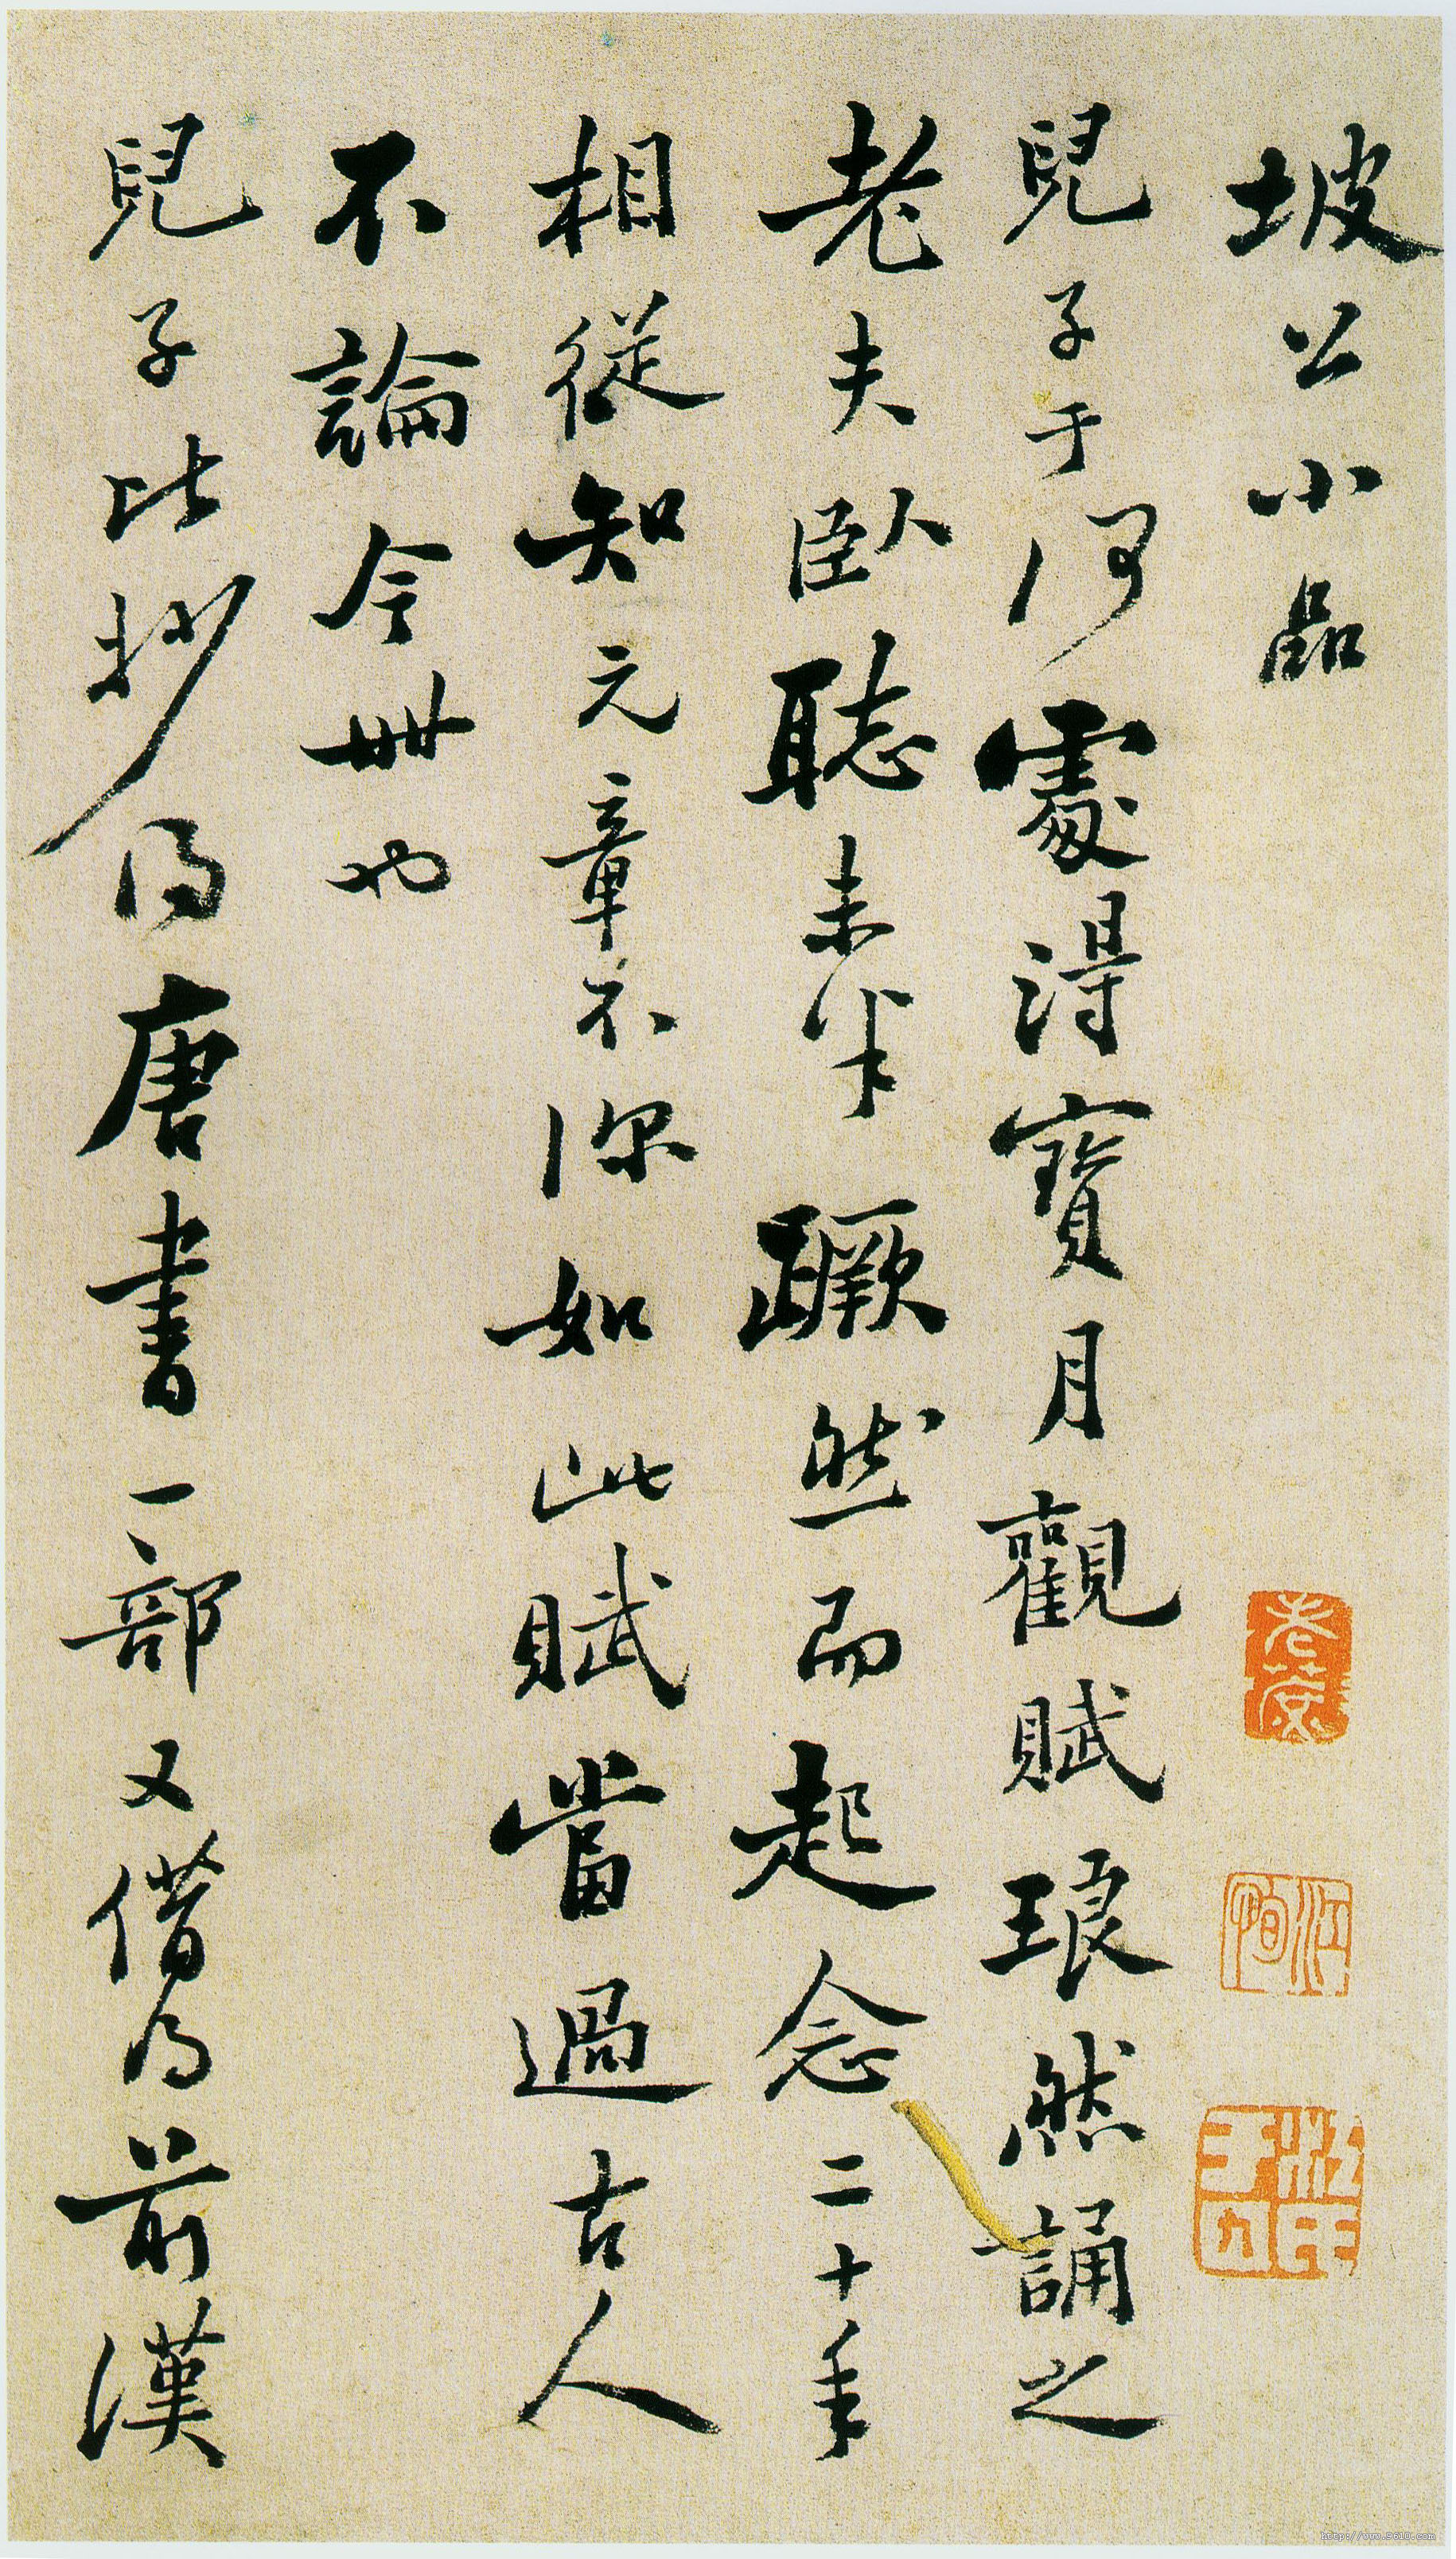 坡公小品
兒子于何處得寶月觀賦琅然誦之
老夫臥聽未半蹶然而起念二十年
相從知元章不深如此賦當過古人
不論今世也
兒子比抄得唐書一部又借得前漢
http://www.9610.com